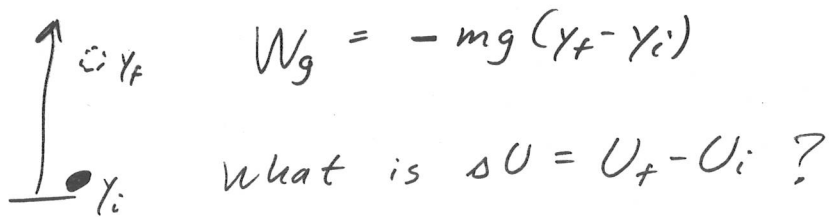 y_f
W_g = - mg (y_f - y_i)
y_i
what is ΔU = U_f - U_i ?